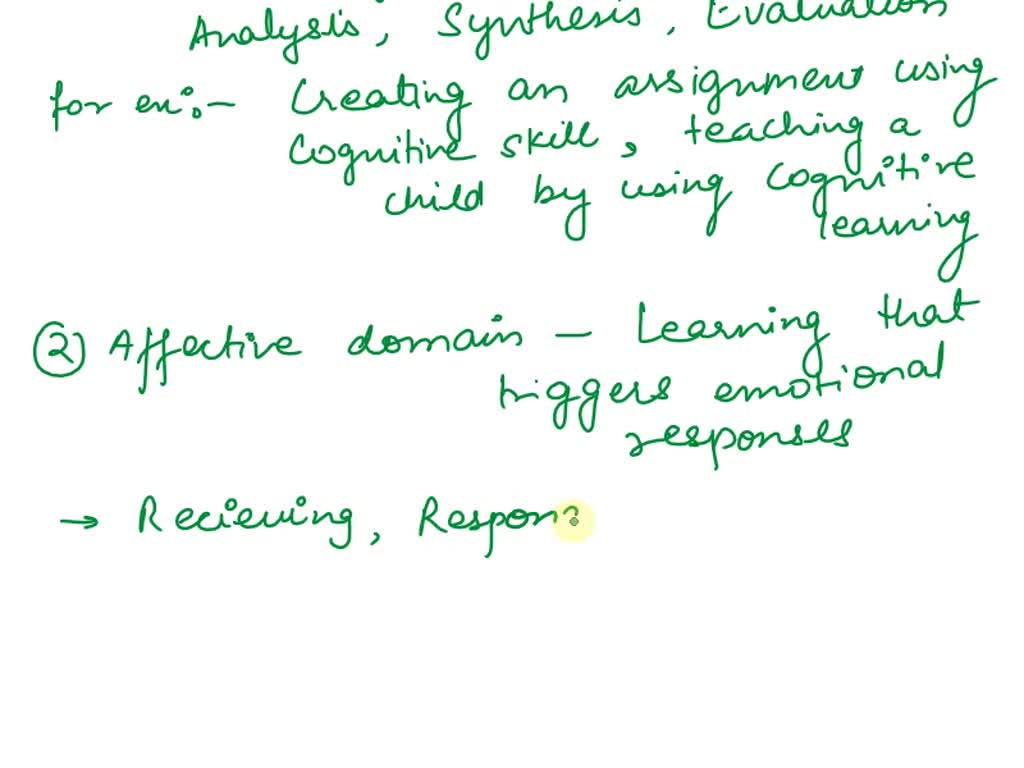 Analysis, Synthesis, Evaluation
for en:- Creating an assignment using
cognitive skill, teaching a
child by using cognitive
learning
② Affective domain - Learning that
triggers emotional
responses
→ Recieving, Respon